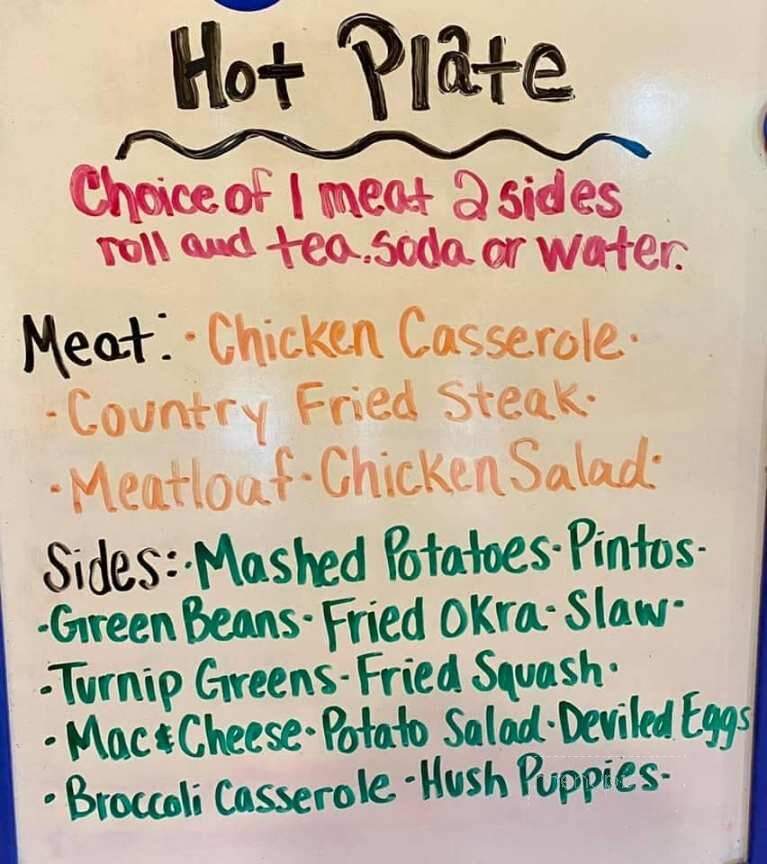 Hot Plate
Choice of 1 meat 2 sides
roll and tea.soda or water.
Meat: · Chicken Casserole ·
· Country Fried Steak ·
· Meatloaf · Chicken Salad ·
Sides: · Mashed Potatoes · Pintos ·
· Green Beans · Fried Okra · Slaw ·
· Turnip Greens · Fried Squash ·
· Mac & Cheese · Potato Salad · Deviled Eggs
· Broccoli Casserole · Hush Puppies ·